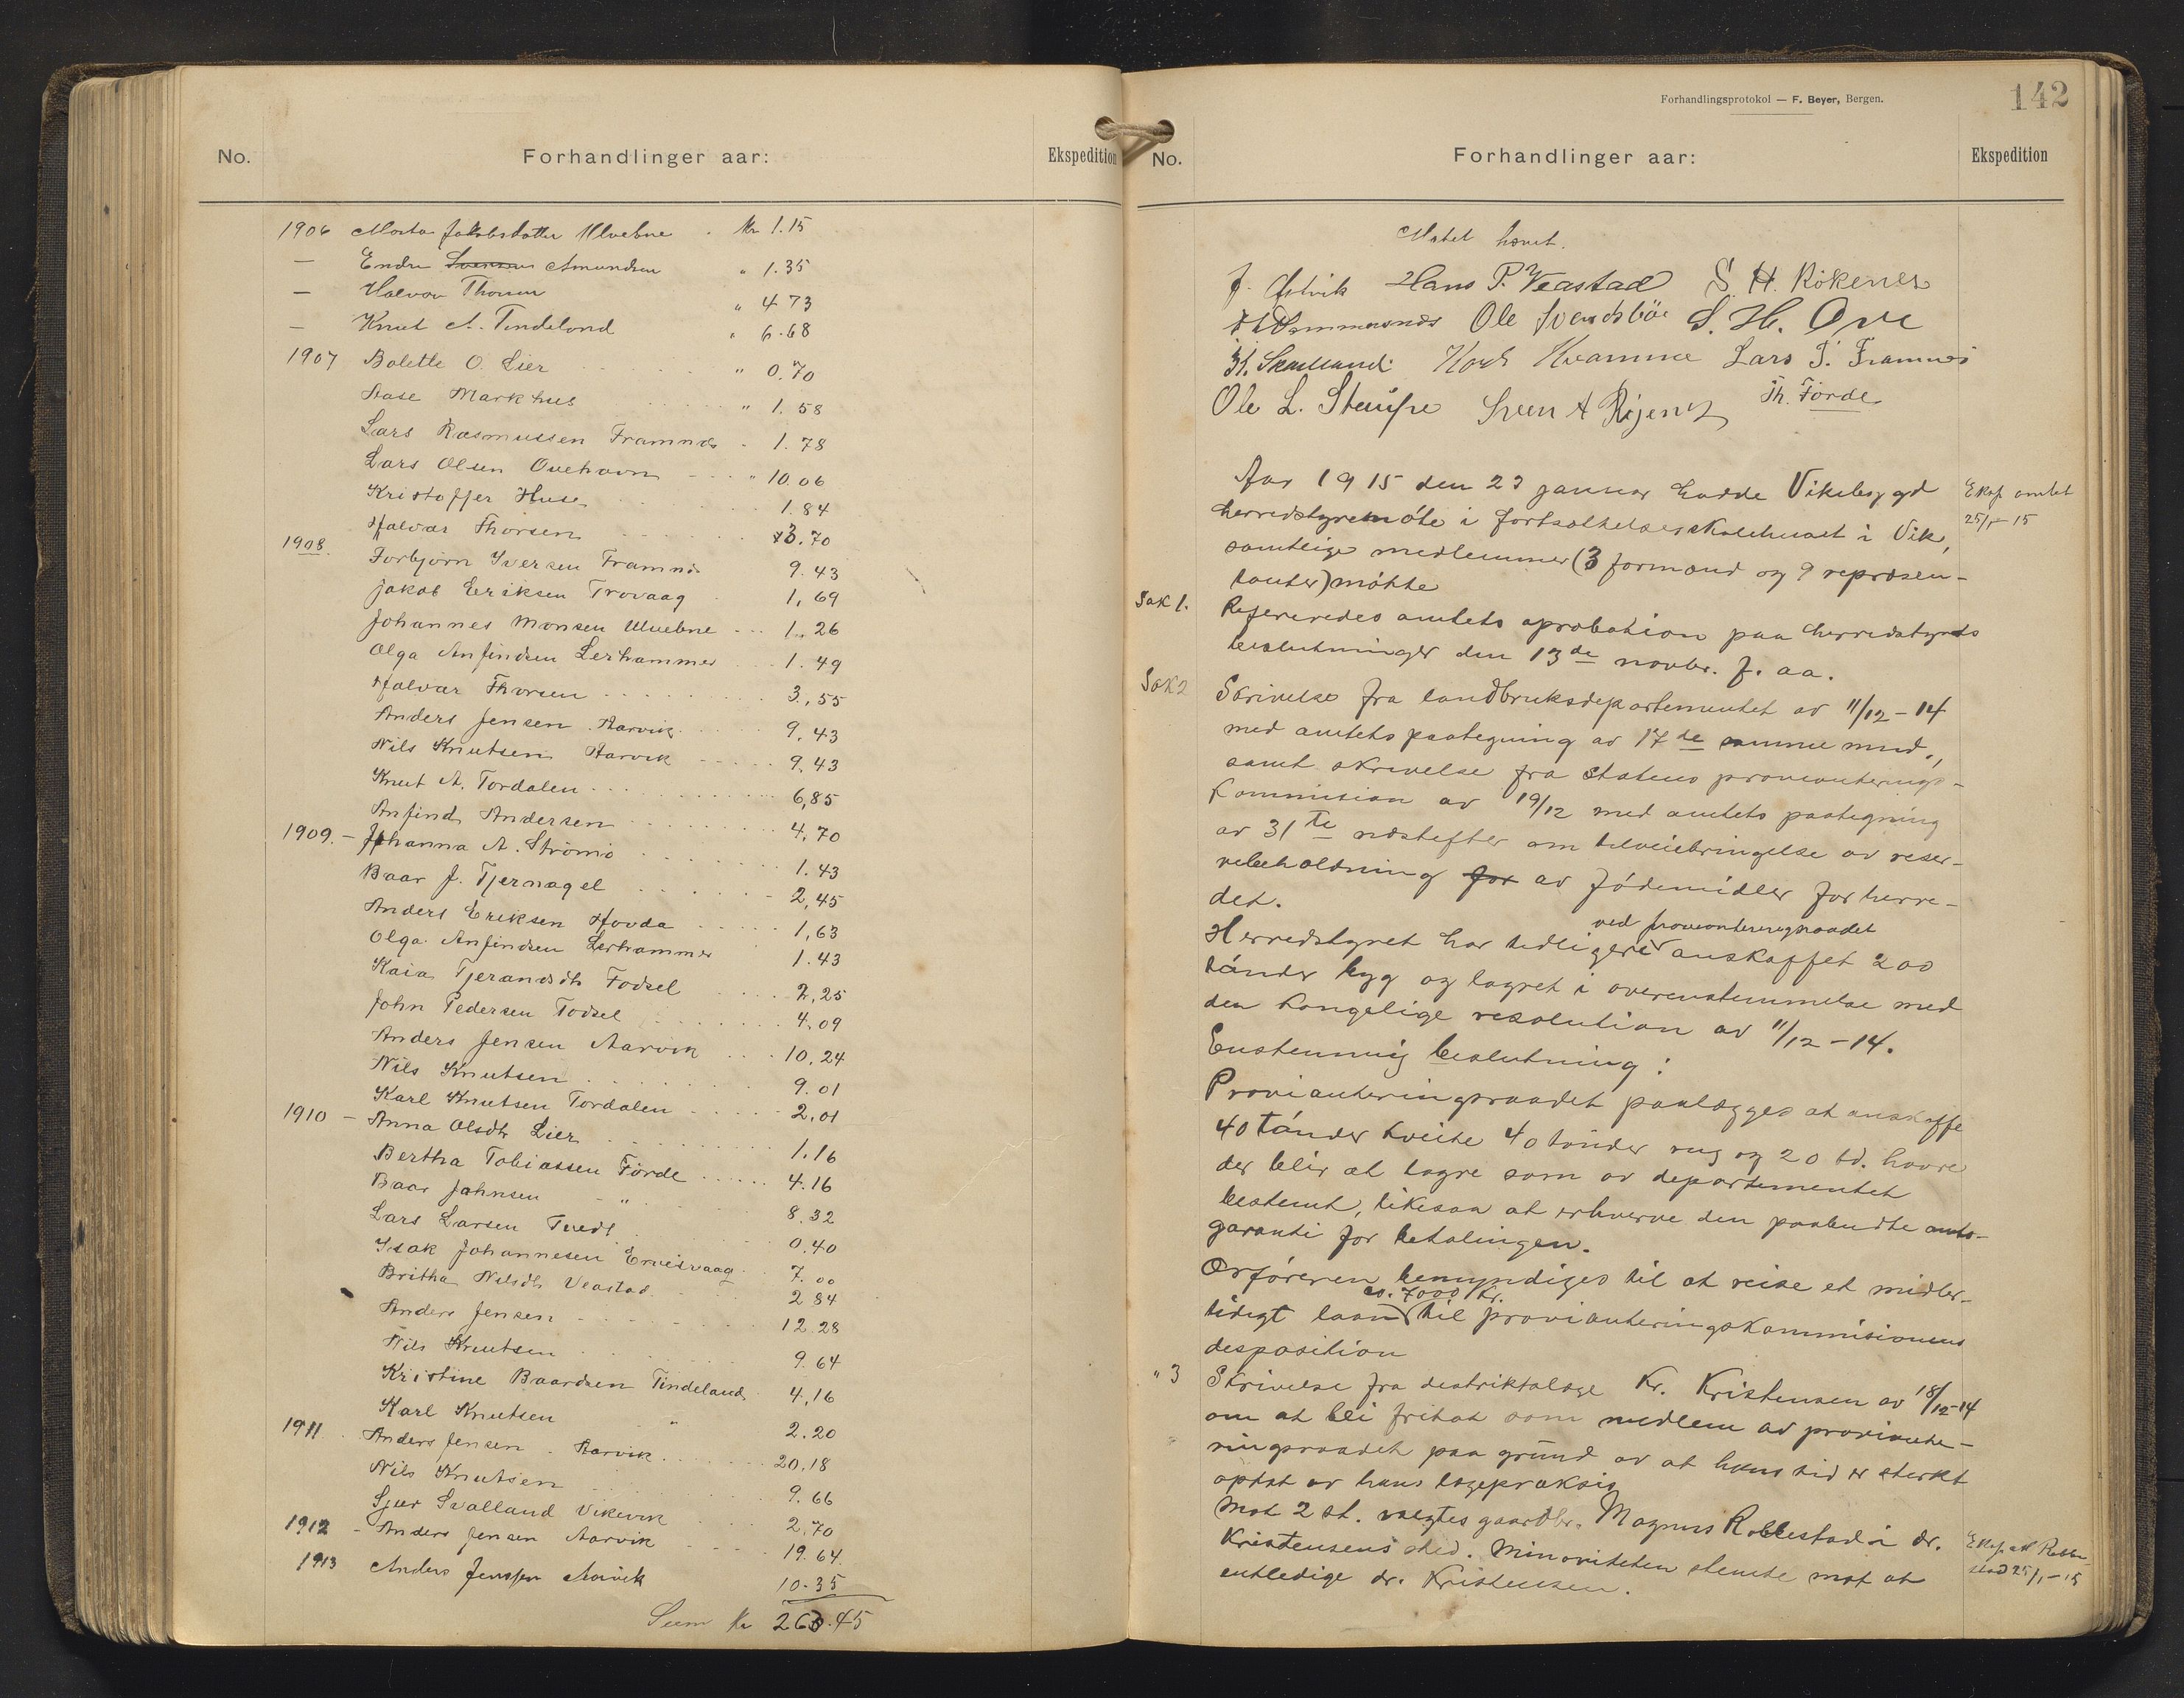 No. Forhandlinger aar: Ekspedition
1906 Marta Jakobsdatter Ulvebne Kr 1.15
— Endre Amundsen " 1.35
— Halvor Thorsen " 4.73
— Knut A. Tindeland " 6.68
1907 Bolette O. Lier " 0.70
Aase Markhus " 1.58
Lars Rasmussen Framnæs 1.78
Lars Olsen Ovehavn " 10.06
Kristoffer Huse 1.84
Halvar Thorsen 3.70
1908. Torbjørn Iversen Framnæs 9.43
Jakob Eriksen Trovaag 1,69
Johannes Monsen Ulvebne 1.26
Olga Anfindsen Lerhammer 1.49
Halvar Thorsen 3,55
Anders Jensen Aarvik 9,43
Nils Knutsen Aarvik 9,43
Knut A. Tordalen 6,85
Anfind Andersen 4,70
1909. — Johanna A. Strömö 1.43
Baar J. Tjernagel 2,45
Anders Eriksen Hovda 1,63
Olga Anfindsen Lerhammer 1.43
Kaia Tjerandsdtr Födsel 2,25
John Pedersen Födsel 4,09
Anders Jensen Aarvik 10,24
Nils Knutsen 9.01
Karl Knutsen Tordalen 2,01
1910 — Anna Olsdtr Lier 1.16
Bertha Tobiassen Förde 4.16
Baar Johnsen — " 8.32
Lars Larsen Tvedt 0.40
Isak Johannesen Ervesvaag 7.00
Britha Nilsdtr Veastad 2 84
Anders Jensen 12.28
Nils Knutsen 9.64
Kristine Baardsen Tindeland 4,16
Karl Knutsen " 2.20
1911 Anders Jensen Aarvik 20,18
Nils Knutsen 9.66
Sjur Svalland Vikevik 2,70
1912 - Anders Jensen Aarvik 19.64
1913 Anders Jensen Aarvik 10.35
Sum Kr 263.45
Forhandlingsprotokol — F. Beyer, Bergen.
142
No. Forhandlinger aar: Ekspedition
Møtet hævet.
J. Østvik Hans P. Veastad S. H. Rökenes
Ole Svendsböe S. H. Ove
Kvamme Lars T. Framnæs
Ole L. Staupe Sven A Th. Förde
Aar 1915 den 23 januar hadde Vikebygd
Eksp amtet
25/1-15
herredstyremöte i fortsættelsesskolehuset i Vik,
samtlige medlemmer (3 formænd og 9 repræsen-
tanter) møtte
Sak 1. Refereredes amtets aprobation paa herredstyrets
beslutninger den 13de novbr. f. aa.
Sak 2 Skrivelse fra landbruksdepartementet av 11/12-14
med amtets paategning av 17de samme mnd.,
samt skrivelse fra statens provianterings-
kommision av 19/12 med amtets paategning
av 31te næstefter om tilveiebringelse av reser-
vebeholdning for av födemidler for herre-
det.
ved provianteringsraadet
Herredstyret har tidligere anskaffet 200
tönder byg og lagret i overenstemmelse med
den kongelige resolution av 11/12-14.
Enstemmig beslutning:
Provianteringsraadet paalægges at anskaffe
40 tönder hveite 40 tönder rug og 20 td. havre
der blir at lagre som av departementet
bestemt, likesaa at erhverve den paabudte amts-
garanti for betalingen.
Ordföreren bemyndiges til at reise et midler-
ca. 7000 kr.
tidigt laan til provianteringskommisionens
desposition
" 3 Skrivelse fra destriktslæge Kr. Kristensen av 18/12-14
om at bli fritat som medlem av proviante-
ringsraadet paa grund av at hans tid er sterkt
optat av hans lægepraksis
Mot 2 st. valgtes gaardbr. Magnus Robbestad i dr.
Kristensens sted. Minoriteten stemte mot at
entledige dr. Kristensen.
Eksp. att Robbe-
stad 25/1-15